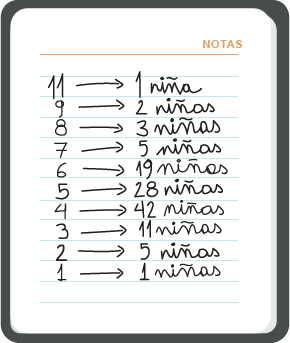 NOTAS
11 → 1 niña
9 → 2 niñas
8 → 3 niñas
7 → 5 niñas
6 → 19 niñas
5 → 28 niñas
4 → 42 niñas
3 → 11 niñas
2 → 5 niñas
1 → 1 niñas